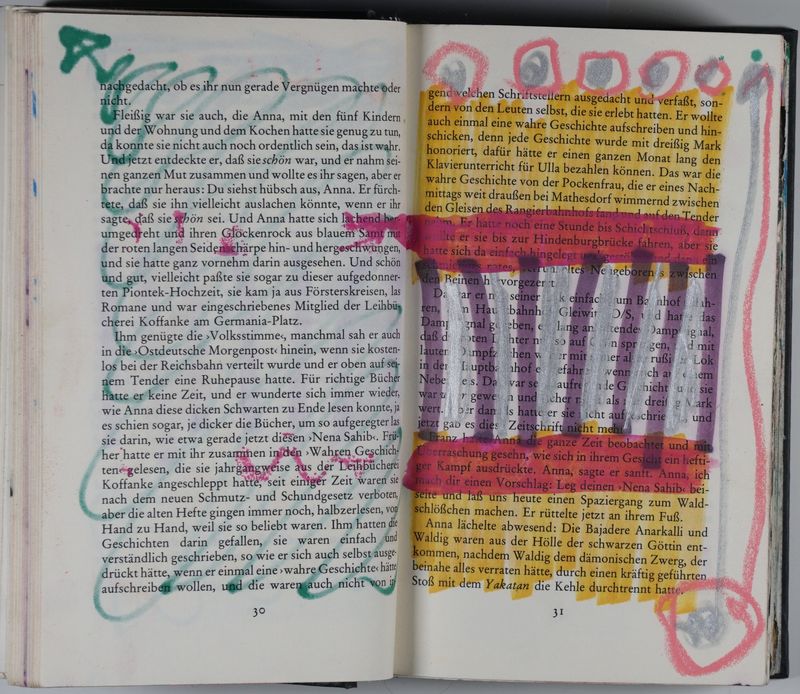 nachgedacht, ob es ihr nun gerade Vergnügen machte oder
nicht.
Fleißig war sie auch, die Anna, mit den fünf Kindern
und der Wohnung und dem Kochen hatte sie genug zu tun,
da konnte sie nicht auch noch ordentlich sein, das ist wahr.
Und jetzt entdeckte er, daß sie schön war, und er nahm sei-
nen ganzen Mut zusammen und wollte es ihr sagen, aber er
brachte nur heraus: Du siehst hübsch aus, Anna. Er fürch-
tete, daß sie ihn vielleicht auslachen könnte, wenn er ihr
sagte, daß sie schön sei. Und Anna hatte sich lachend her-
umgedreht und ihren Glockenrock aus blauem Samt mit
der roten langen Seidenschärpe hin- und hergeschwungen,
und sie hatte ganz vornehm darin ausgesehen. Und schön
und gut, vielleicht paßte sie sogar zu dieser aufgedonner-
ten Piontek-Hochzeit, sie kam ja aus Försterskreisen, las
Romane und war eingeschriebenes Mitglied der Leihbü-
cherei Koffanke am Germania-Platz.
Ihm genügte die ›Volksstimme‹, manchmal sah er auch
in die ›Ostdeutsche Morgenpost‹ hinein, wenn sie kosten-
los bei der Reichsbahn verteilt wurde und er oben auf sei-
nem Tender eine Ruhepause hatte. Für richtige Bücher
hatte er keine Zeit, und er wunderte sich immer wieder,
wie Anna diese dicken Schwarten zu Ende lesen konnte, ja
es schien sogar, je dicker die Bücher, um so aufgeregter las
sie darin, wie etwa gerade jetzt diesen ›Nena Sahib‹. Frü-
her hatte er mit ihr zusammen in den ›Wahren Geschich-
ten‹ gelesen, die sie jahrgangweise aus der Leihbücherei
Koffanke angeschleppt hatte, seit einiger Zeit waren sie
nach dem neuen Schmutz- und Schundgesetz verboten,
aber die alten Hefte gingen immer noch, halbzerlesen, von
Hand zu Hand, weil sie so beliebt waren. Ihm hatten die
Geschichten darin gefallen, sie waren einfach und
verständlich geschrieben, so wie er sich auch selbst ausge-
drückt hätte, wenn er einmal eine ›wahre Geschichte‹ hätte
aufschreiben wollen, und die waren auch nicht von ir-
30
gendwelchen Schriftstellern ausgedacht und verfaßt, son-
dern von den Leuten selbst, die sie erlebt hatten. Er wollte
auch einmal eine wahre Geschichte aufschreiben und hin-
schicken, denn jede Geschichte wurde mit dreißig Mark
honoriert, dafür hätte er einen ganzen Monat lang den
Klavierunterricht für Ulla bezahlen können. Das war die
wahre Geschichte von der Pockenfrau, die er eines Nach-
mittags weit draußen bei Mathesdorf wimmernd zwischen
den Gleisen des Rangierbahnhofs fand und auf den Tender
nahm. Er hatte noch eine Stunde bis Schichtschluß, dann
wollte er sie bis zur Hindenburgbrücke fahren, aber sie
hatte sich da einfach hingelegt und
Neugeborenes zwischen
den Beinen hervorgezerrt.
Da war er mit seiner Lok einfach zum Bahnhof
Hauptbahnhof Gleiwitz O/S, und hatte das
Dampfsignal gegeben, ein lang anhaltendes Dampfsignal,
daß die roten Lichter nur so auf Grün sprangen, und mit
lauten Dampfzischen war er mit seiner Lok
in den Hauptbahnhof eingefahren, wenn auch auf einem
Nebengleis. Das war seine aufregende Geschichte, und sie
war wahr gewesen und sicher mehr als dreißig Mark
wert. Aber dann hatte er sie nicht aufgeschrieben, und
jetzt gab es diese Zeitschrift nicht mehr.
Franz hatte Anna die ganze Zeit beobachtet und mit
Überraschung gesehn, wie sich in ihrem Gesicht ein hefti-
ger Kampf ausdrückte. Anna, sagte er sanft. Anna, ich
mach dir einen Vorschlag: Leg deinen ›Nena Sahib‹ bei-
seite und laß uns heute einen Spaziergang zum Wald-
schlößchen machen. Er rüttelte jetzt an ihrem Fuß.
Anna lächelte abwesend: Die Bajadere Anarkalli und
Waldig waren aus der Hölle der schwarzen Göttin ent-
kommen, nachdem Waldig dem dämonischen Zwerg, der
beinahe alles verraten hätte, durch einen kräftig geführten
Stoß mit dem Yakatan die Kehle durchtrennt hatte.
31